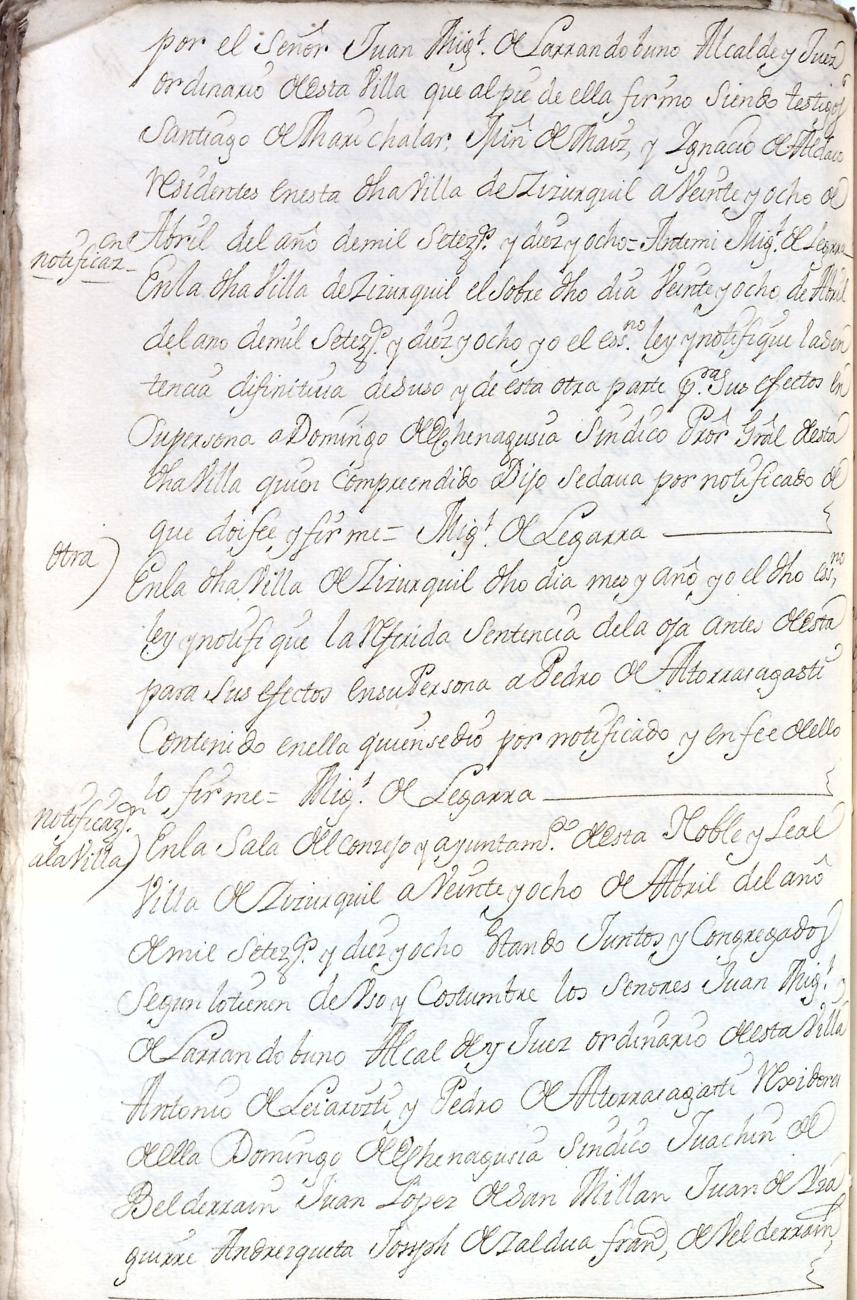 por el Señor Juan Migl. de Larrandobuno Alcalde y Juez
ordinario desta Villa que al pie de ella firmo siendo testigos
Santiago de Maxichalar, Min de Thaiz, y Ignacio de Aldaco
Residentes enesta dha Villa de Zizurquil a Veinte y ocho de
Abril del año demil Setezs. y diez y ocho = Antemi Migl. de Legarra
notificazon
Enla dha Villa de Zizurquil el sobre dho dia Veinte y ocho de Abril
del ano demil Setezs. y diez y ocho yo el essno. ley y notifique la sen
tencia difinitiva desuso y de esta otra parte pra. sus efectos en
Supersona a Domingo de Echenagusia Sindico Pror Gral desta
dha Villa quien Compreendido Dijo sedaua por notificado de
que doi fee y firme = Migl. de Legarra
Otra
Enla dha Villa de Zizurquil dho dia mes y año yo el dho essno,
ley y notifique la Referida Sentencia dela oja antes desta
para sus efectos ensu Persona a Pedro de Altorrasagasti
Contenido enella quien sedio por notificado y en fee dello
lo firme = Migl. de Legarra
notificazn.
ala Villa
Enla Sala del conzejo y ayuntamto. desta Noble y Leal
Villa de Zizurquil a Veinte y ocho de Abril del año
de mil Setezs. y diez y ocho estando Juntos y Congregados
Segun lo tienen de Vso y Costumbre los Señores Juan Migl.
de Larrandobuno Alcalde y Juez ordinario desta Villa
Antonio de Leiarizti y Pedro de Altorrasagasti Rexidores
della Domingo de Echenagusia Sindico Juachin de
Belderrain Juan Lopez de San Millan Juan de Yza
guirre Andrezqueta Joseph de Zaldua, fran, de Velderrain,